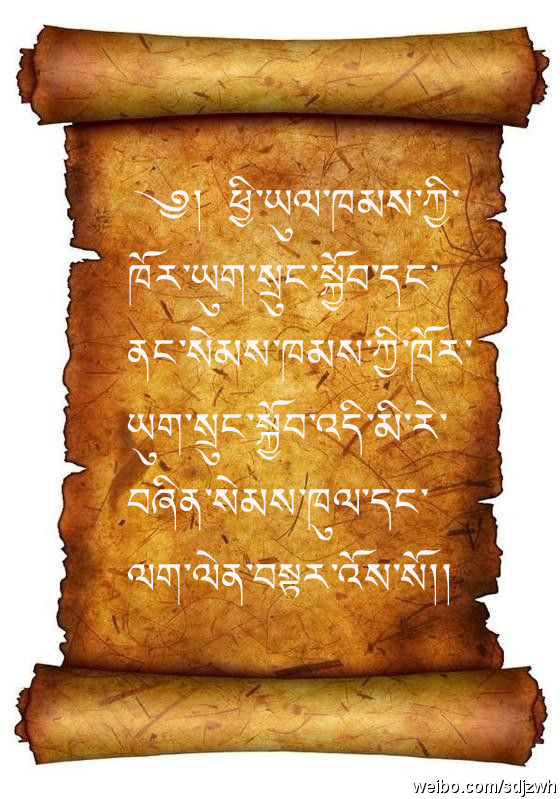 ༄། ཕྱི་ཡུལ་ཁམས་ཀྱི་
ཁོར་ཡུག་སྲུང་སྐྱོབ་དང་
ནང་སེམས་ཁམས་ཀྱི་ཁོར་
ཡུག་སྲུང་སྐྱོབ་འདི་མི་རེ་
བཞིན་སེམས་ཁུལ་དང་
ལག་ལེན་བསྟར་འོས་སོ།།
weibo.com/sdjzwh